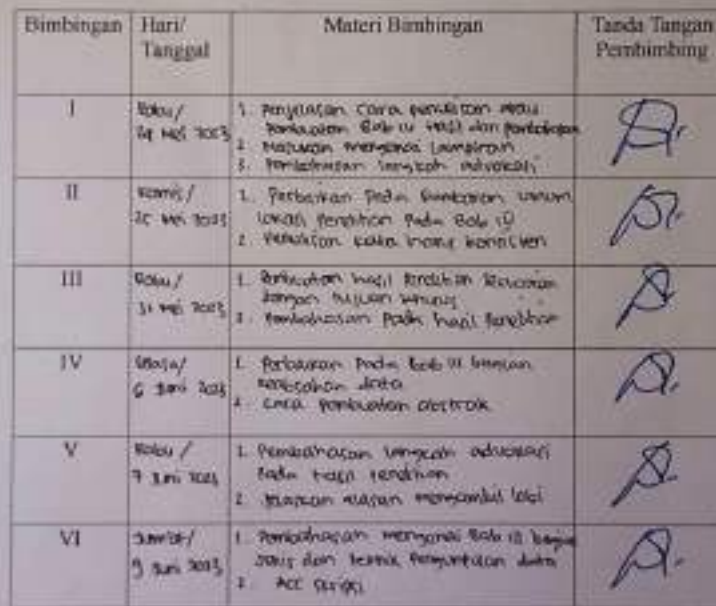 Bimbingan
Hari/
Tanggal
Materi Bimbingan
Tanda Tangan
Pembimbing
I
Rabu/
24 Mei 2023
1. Penjelasan cara penulisan
Pembuatan Bab IV Hasil dan Pembahasan
2. Masukan mengenai lampiran
3. Pembahasan langkah advokasi
II
Kamis/
25 Mei 2023
1. Perbaikan Pada Gambaran umum
lokasi Penelitian Pada Bab IV
2. Penulisan kata konsisten
III
Rabu/
31 Mei 2023
1. Pembuatan hasil Penelitian
dengan tujuan khusus
2. Pembahasan Pada hasil Penelitian
IV
Selasa/
6 Juni 2023
1. Perbaikan Pada Bab III bagian
keabsahan data
2. Cara Pembuatan abstrak
V
Rabu /
7 Juni 2023
1. Pembahasan langkah advokasi
Pada hasil Penelitian
2. alasan mengambil
VI
Jum'at/
9 Juni 2023
1. Pembahasan mengenai Bab III bagian
jenis dan teknik Pengumpulan data
2. Acc skripsi